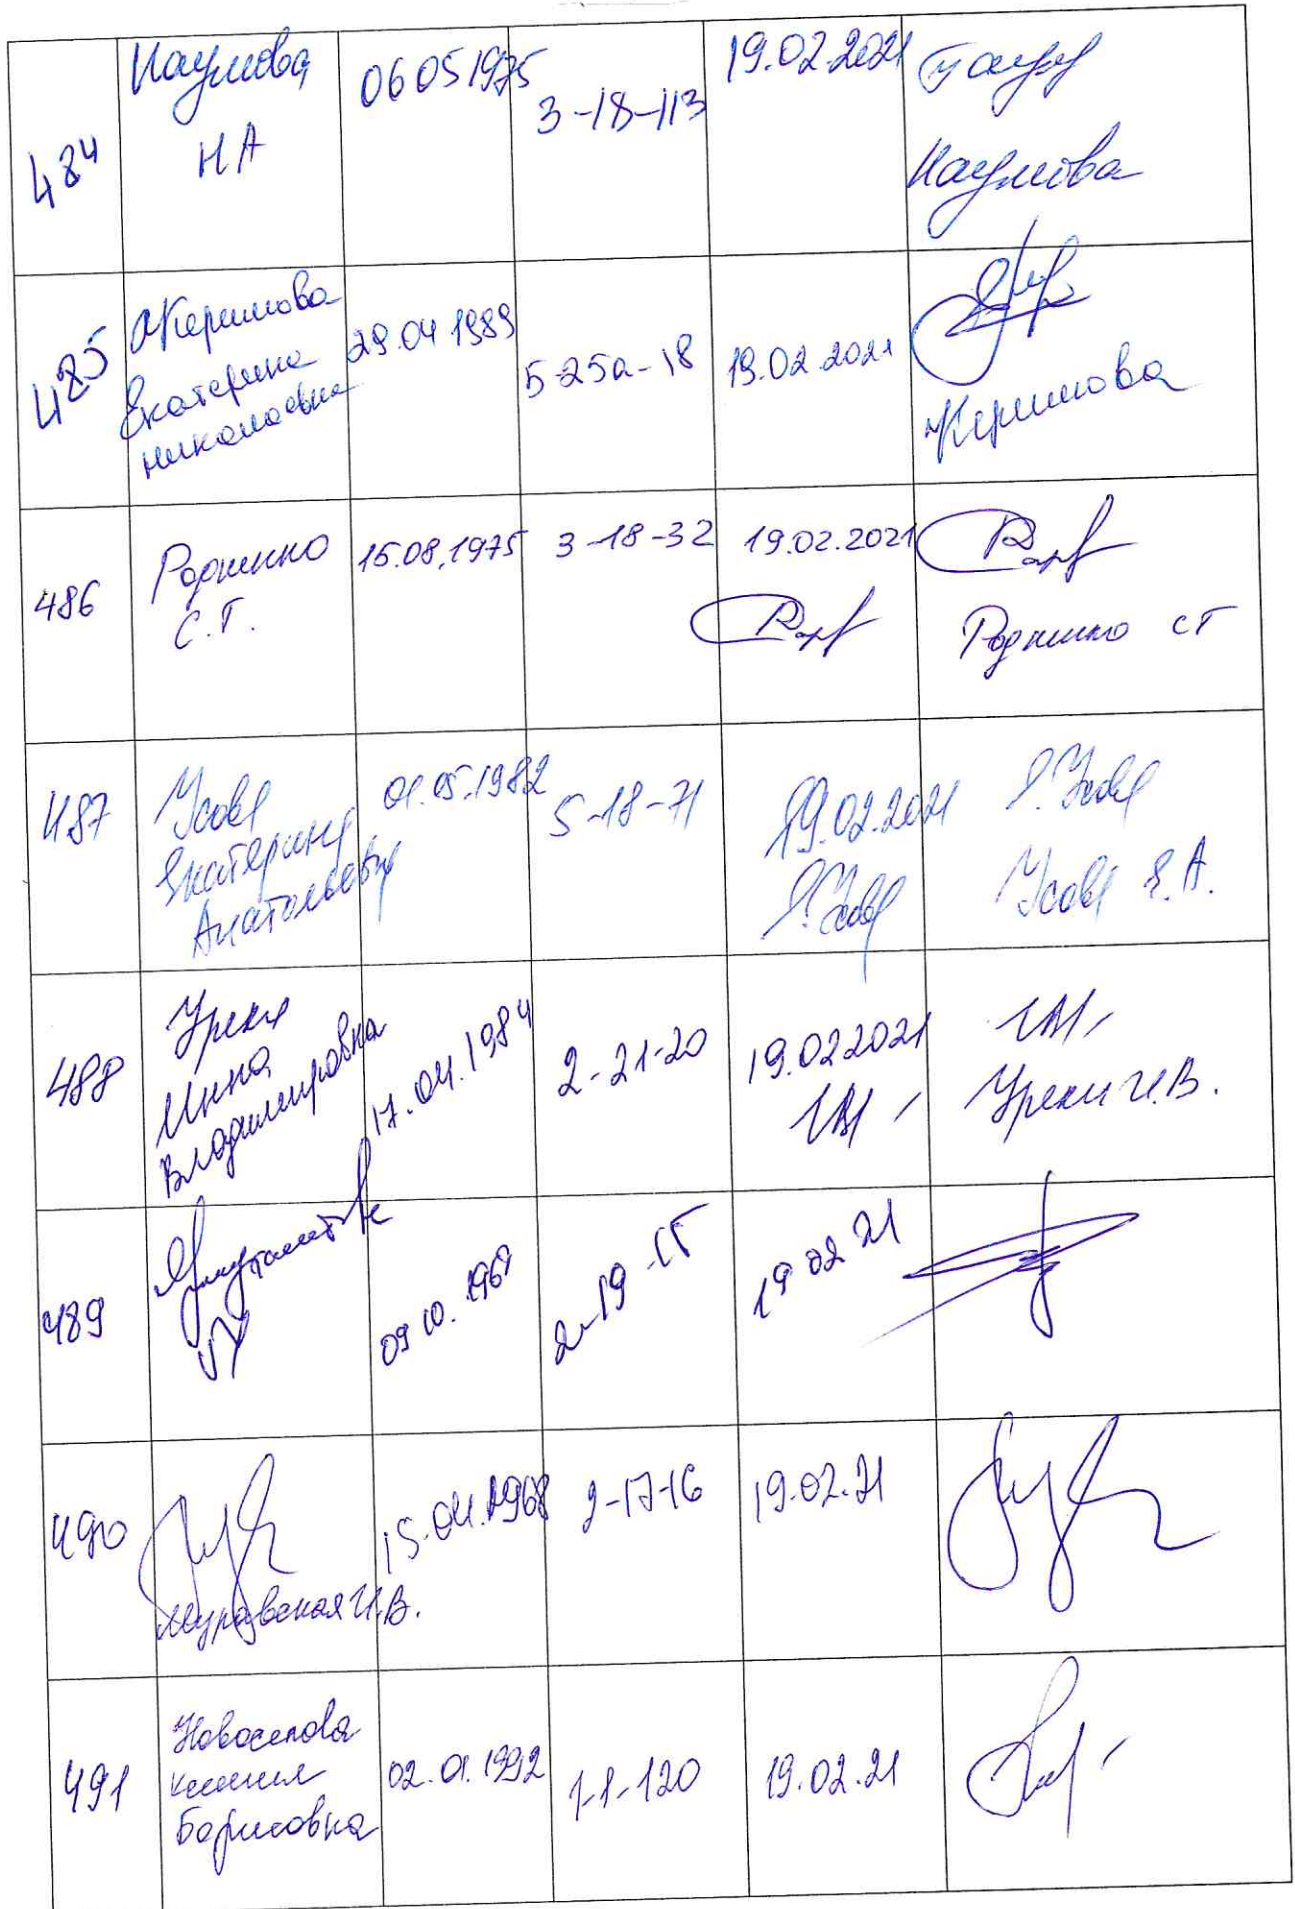 484
Наумова
НА
06 05 1975
3-18-113
19.02.2021
Наумова
485
Керимова
Екатерина
Николаевна
29.04 1989
5-25а-18
19.02.2021
Керимова
486
Родненко
С.Г.
15.08.1975
3-18-32
19.02.2021
Родненко СГ
487
Усова
Екатерина
Анатольевна
01.05.1982
5-18-71
19.02.2021
Усова Е.А.
488
Уреки
Инна
Владимировна
17.04.1984
2-21-20
19.02 2021
Уреки И.В.
489
09 10.
2-19
19 02 21
490
Муравская И.В.
15.04.1968
2-17-16
19.02.21
491
Новоселова
Ксения
Борисовна
02.01.1992
1-1-120
19.02.21